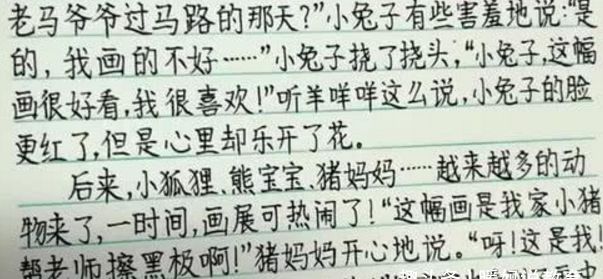 老马爷爷过马路的那天?”小兔子有些害羞地说:“是
的,我画的不好……”小兔子挠了挠头,“小兔子,这幅
画很好看,我很喜欢!”听羊咩咩这么说,小兔子的脸
更红了,但是心里却乐开了花。
后来,小狐狸、熊宝宝、猪妈妈……越来越多的动
物来了,一时间,画展可热闹了!“这幅画是我家小猪
帮老师擦黑极啊!”猪妈妈开心地说。“呀!这是我!